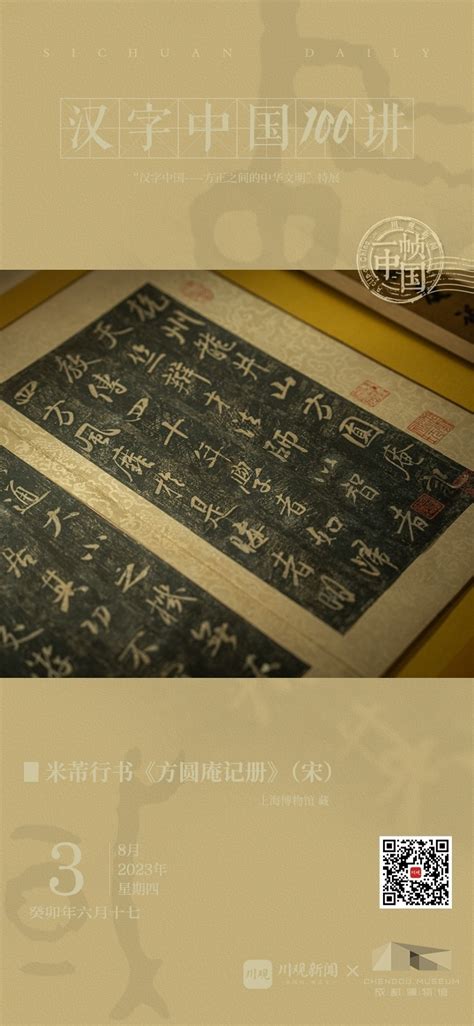 SICHUAN DAILY
汉字中国100讲
“汉字中国——方正之间的中华文明”特展
一帧
中国
杭州龍井山方圓庵記
天竺辯才法師以智者
教傳四十年學者如歸
四方風靡於是晦者明
通大小之機
居其功不
米芾行书《方圆庵记册》（宋）
上海博物馆 藏
3
8月
2023年
星期四
癸卯年六月十七
川观
川观新闻
×
CHENGDU MUSEUM
成都博物馆